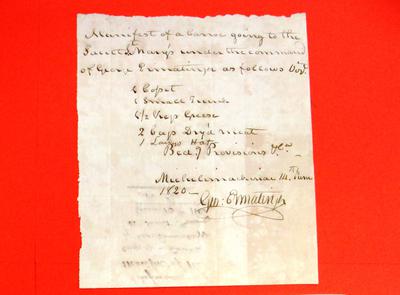 Manifest of a barge going to the
Sault St Mary's under the command
of George Ermatinger as follows
1 Small Trunk
1/2 Keg Grease
2 Bags Dry'd meat
1 Ladys Hat
Bed & Provisions &ca
Michilimackinac
1820
Geo: Ermatinger